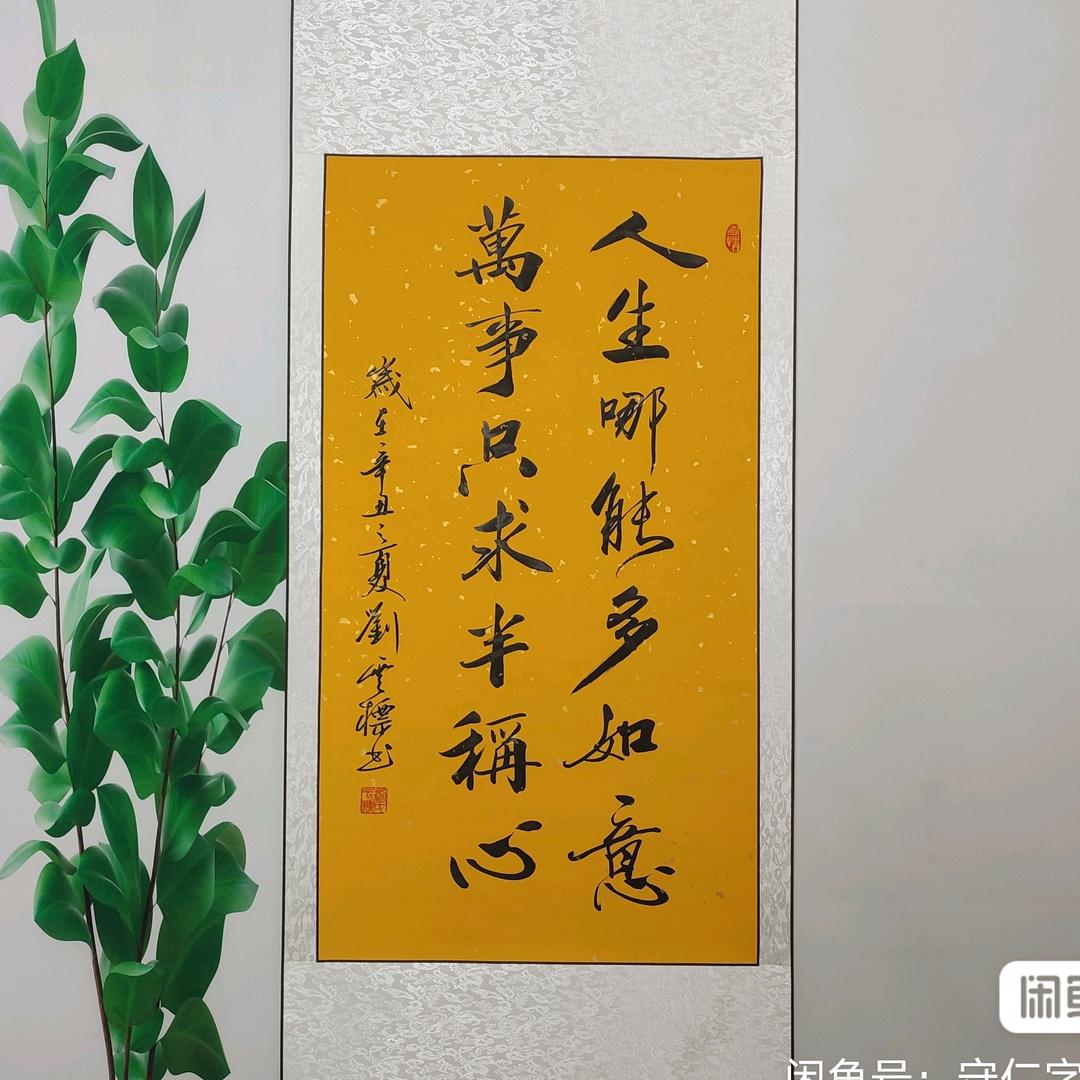 人生哪能多如意
萬事只求半稱心
歲在辛丑之夏劉雲標书
闲鱼
闲鱼号：守仁字